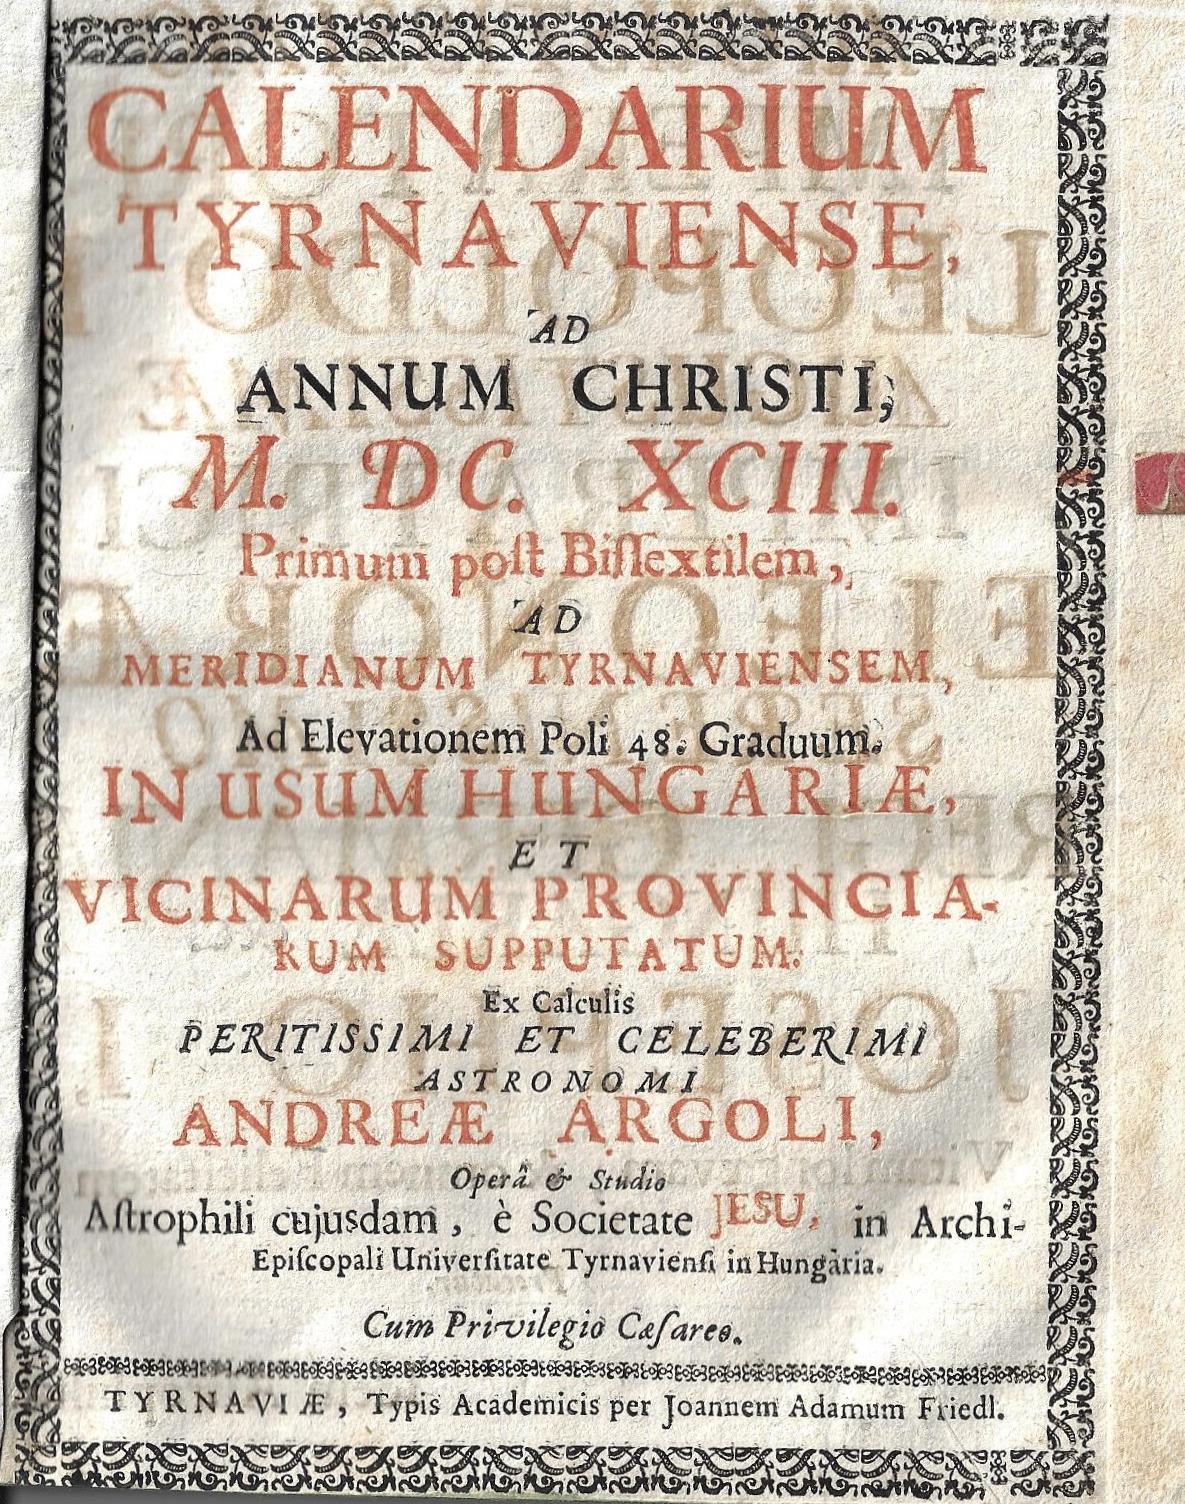 CALENDARIUM
TYRNAVIENSE,
AD
ANNUM CHRISTI,
M. DC. XCIII.
Primum poſt Biſſextilem,
AD
MERIDIANUM TYRNAVIENSEM,
Ad Elevationem Poli 48. Graduum.
IN USUM HUNGARIÆ,
ET
VICINARUM PROVINCIA-
RUM SUPPUTATUM.
Ex Calculis
PERITISSIMI ET CELEBERIMI
ASTRONOMI
ANDREÆ ARGOLI,
Operâ & Studio
Aſtrophili cujusdam, è Societate JESU, in Archi-
Epiſcopali Univerſitate Tyrnavienſi in Hungaria.
Cum Privilegio Cæſareo.
TYRNAVIÆ, Typis Academicis per Joannem Adamum Friedl.